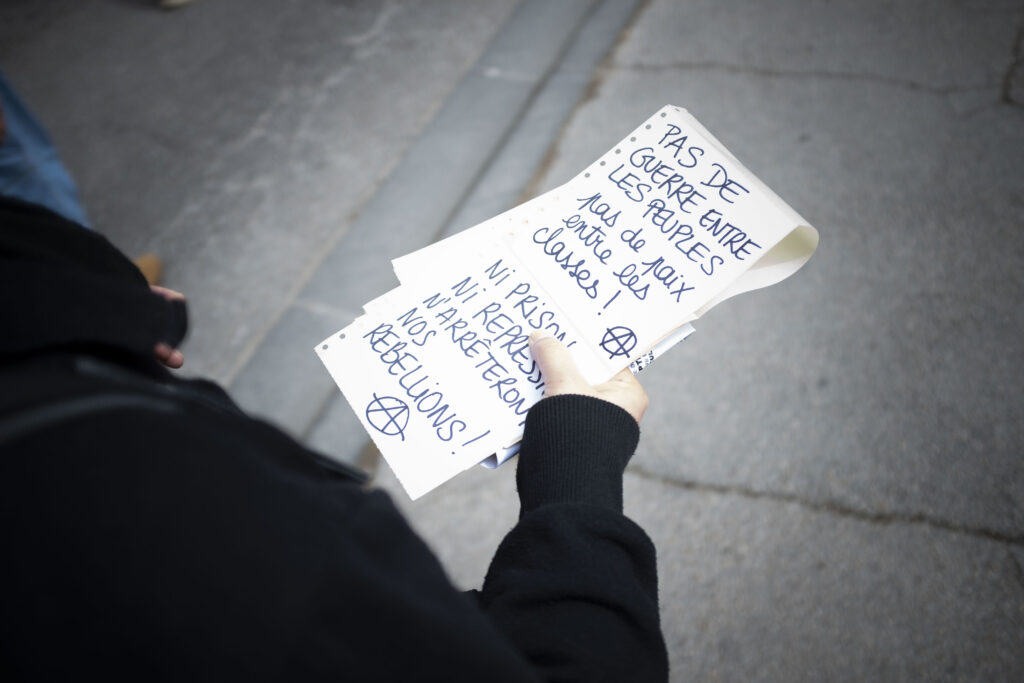 PAS DE
GUERRE ENTRE
LES PEUPLES
pas de paix
entre les
classes !
NI PRISON
NI RÉPRESSI
N'ARRÊTERON
NOS
REBELLIONS !